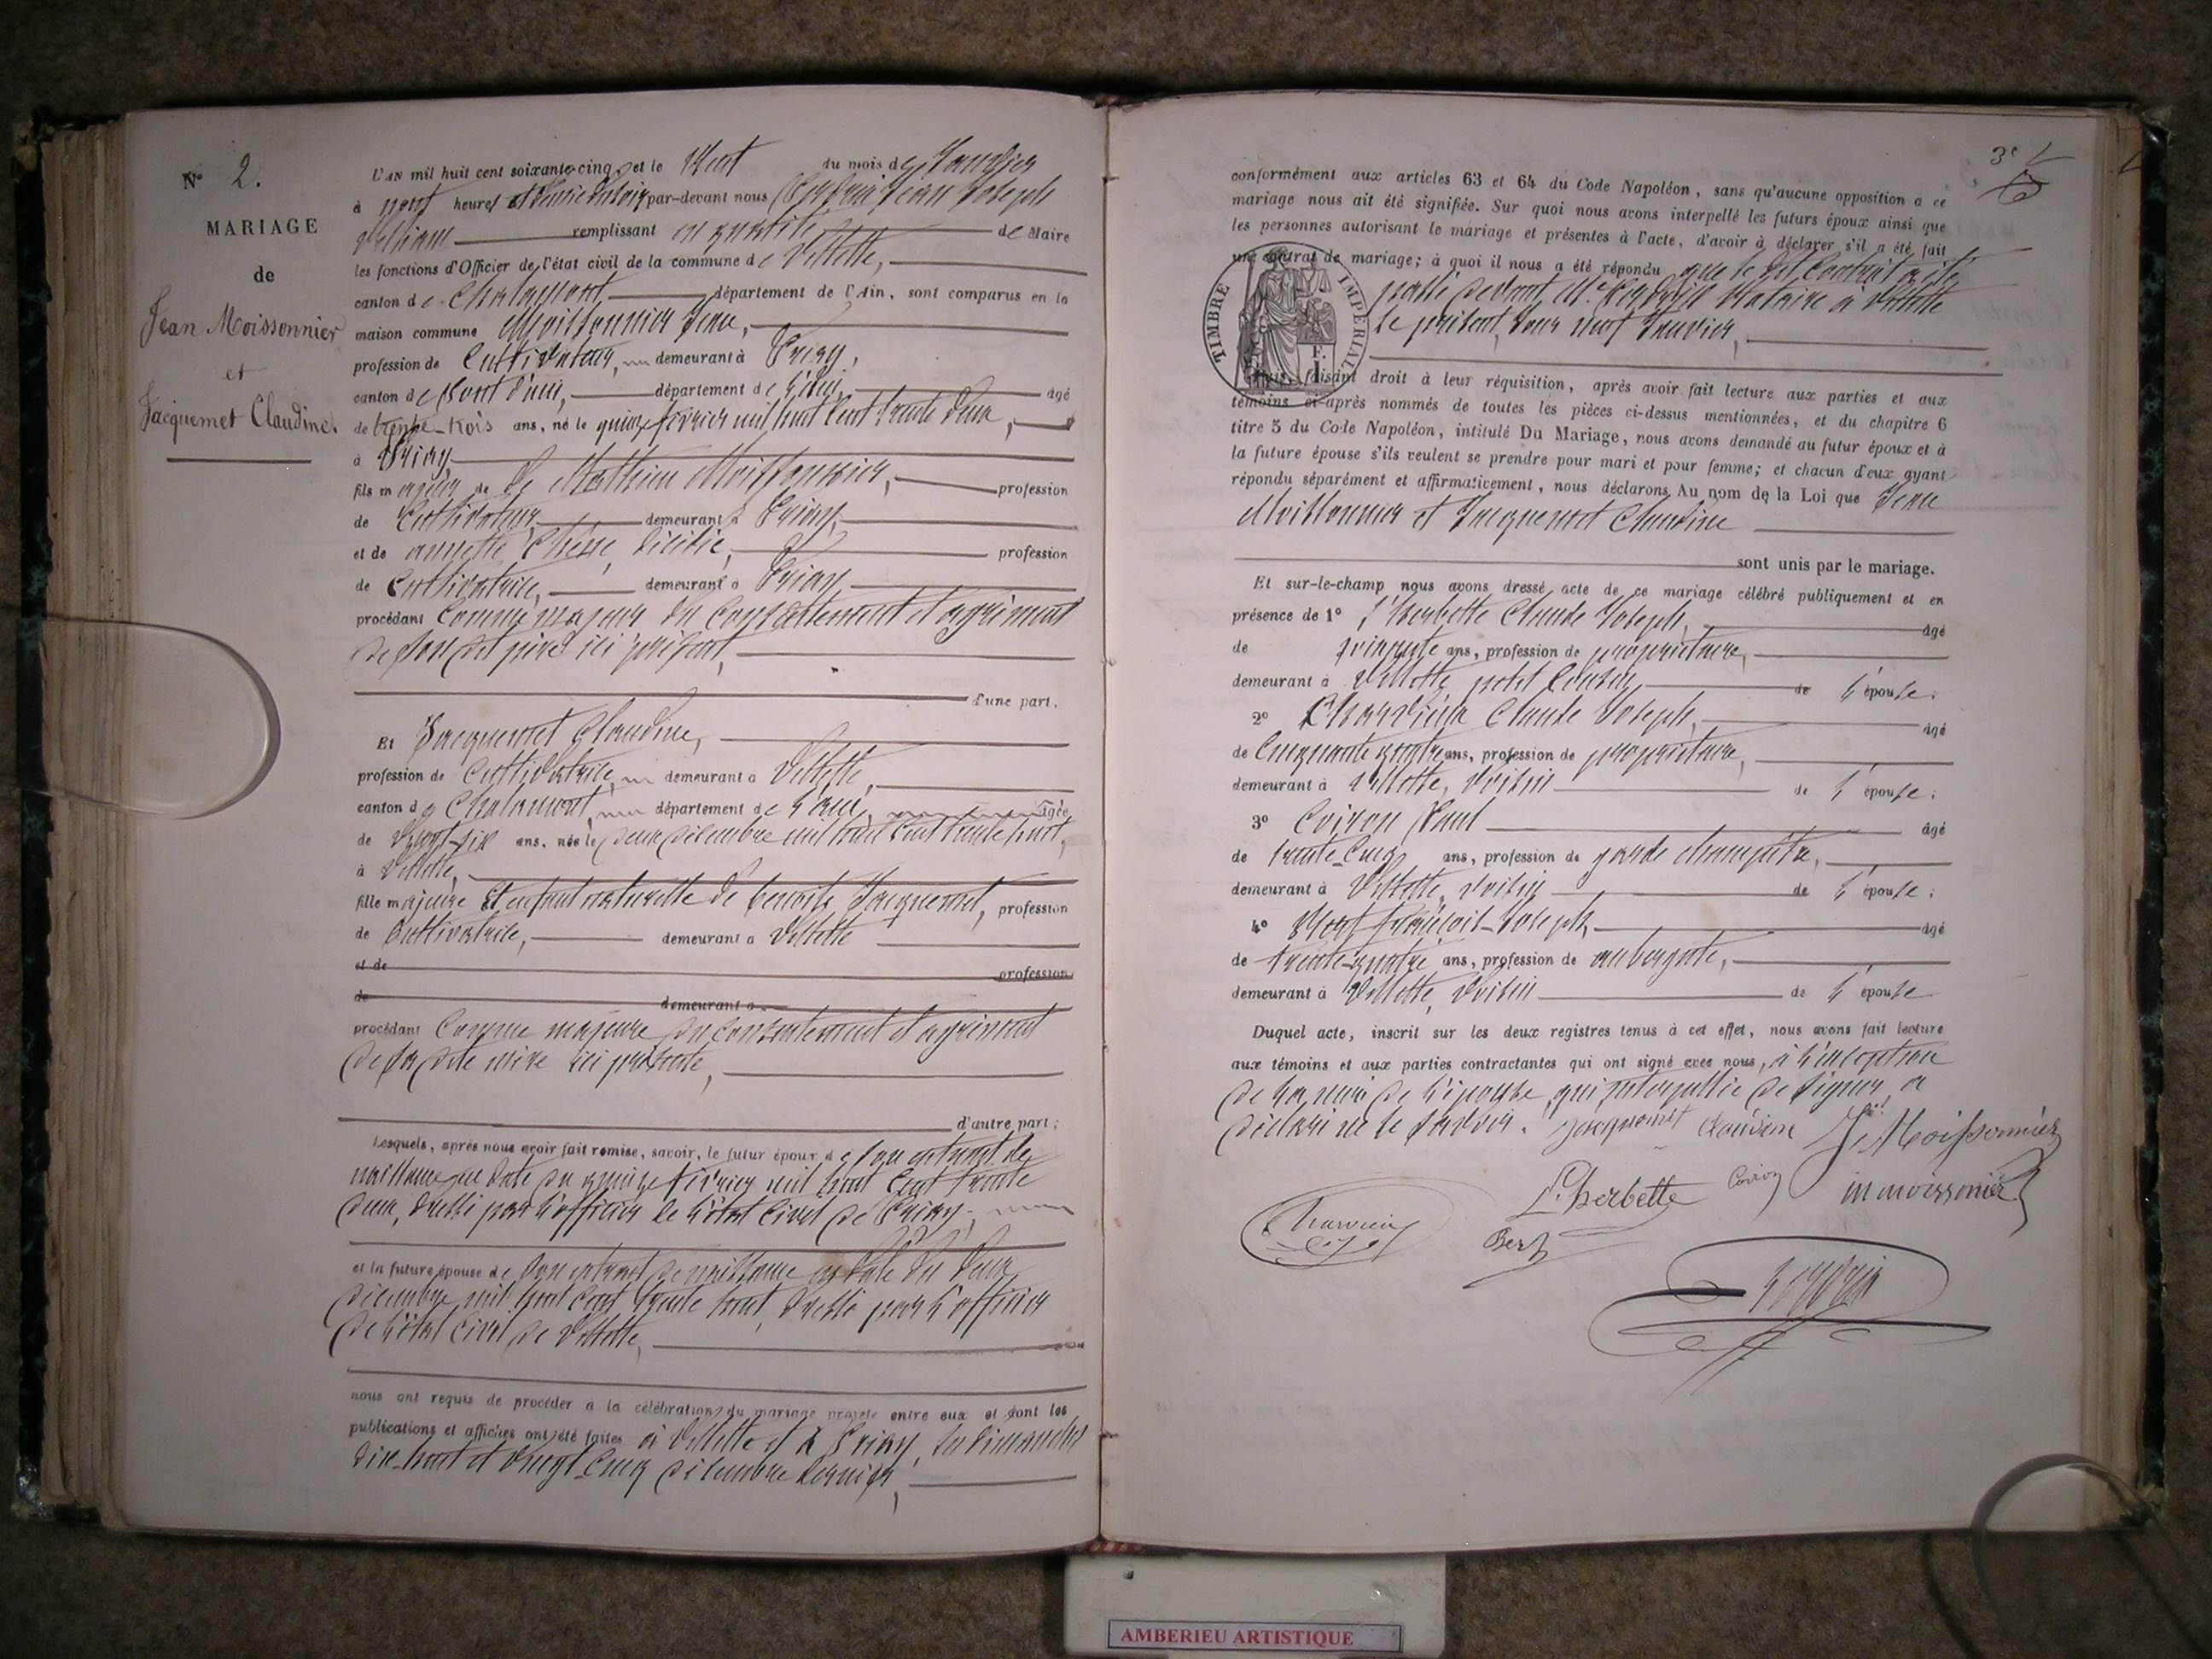 N° 2.
MARIAGE
de
Jean Moissonnier
et
Jacquemet Claudine.
L'AN mil huit cent soixante-cinq, et le neuf du mois de Janvier
à neuf heures et demie du soir, par-devant nous Jean Joseph
remplissant en qualité de Maire
les fonctions d'Officier de l'état civil de la commune de Villette,
canton de Chalamont, département de l'Ain, sont comparus en la
maison commune Moissonnier Jean,
profession de Cultivateur, demeurant à Priay,
canton de Pont d'ain, département de l'ain, âgé
de trente-trois ans, né le quinze février mil huit cent trente deux,
à Priay,
fils majeur de de Mathieu Moissonnier, profession
de Cultivateur, demeurant à Priay,
et de annette décédée, profession
de Cultivatrice, demeurant à Priay
procédant Comme majeur du consentement et agrément
de son dit père ici présent,
d'une part.
Et Jacquemet Claudine,
profession de Cultivatrice, demeurant à Villette,
canton de Chalamont, département de l'ain, âgée
de vingt-six ans, née le deux décembre mil huit cent trente huit,
à Villette,
fille majeure et enfant naturelle de benoite Jacquemet, profession
de Cultivatrice, demeurant à Villette
et de profession
de demeurant à
procédant Comme majeure du consentement et agrément
de sa dite mère ici présente,
d'autre part;
Lesquels, après nous avoir fait remise, savoir, le futur époux de son extrait de
naissance en date du quinze février mil huit cent trente
deux, dressé par l'officier de l'état civil de Priay;
et la future épouse de son extrait de naissance en date du deux
décembre mil huit cent trente huit, dressé par l'officier
de l'état civil de Villette,
nous ont requis de procéder à la célébration du mariage projeté entre eux et dont les
publications et affiches ont été faites à Villette et à Priay, les dimanches
dix-huit et vingt-cinq décembre dernier,
3e
conformément aux articles 63 et 64 du Code Napoléon, sans qu'aucune opposition à ce
mariage nous ait été signifiée. Sur quoi nous avons interpellé les futurs époux ainsi que
les personnes autorisant le mariage et présentes à l'acte, d'avoir à déclarer s'il a été fait
un contrat de mariage; à quoi il nous a été répondu que le dit Contrat a été
passé devant Me Notaire à Villette
le présent jour neuf Janvier,
TIMBRE IMPÉRIAL
F.
1
faisant droit à leur réquisition, après avoir fait lecture aux parties et aux
témoins ci-après nommés de toutes les pièces ci-dessus mentionnées, et du chapitre 6
titre 5 du Code Napoléon, intitulé Du Mariage, nous avons demandé au futur époux et à
la future épouse s'ils veulent se prendre pour mari et pour femme; et chacun d'eux ayant
répondu séparément et affirmativement, nous déclarons Au nom de la Loi que Jean
Moissonnier et Jacquemet Claudine
sont unis par le mariage.
Et sur-le-champ nous avons dressé acte de ce mariage célébré publiquement et en
présence de 1° L'herbette Claude Joseph, âgé
de ans, profession de propriétaire,
demeurant à Villette, petit Cousin de l'épouse.
2° Charvieux Claude Joseph, âgé
de Cinquante quatre ans, profession de propriétaire,
demeurant à Villette, voisin de l'épouse;
3° Coiron Paul âgé
de trente-cinq ans, profession de garde champêtre,
demeurant à Villette, voisin de l'épouse;
4° françois-Joseph, âgé
de trente-quatre ans, profession de aubergiste,
demeurant à Villette, voisin de l'épouse
Duquel acte, inscrit sur les deux registres tenus à cet effet, nous avons fait lecture
aux témoins et aux parties contractantes qui ont signé avec nous, à l'exception
de la mère de l'épouse qui interpellée de signer a
déclaré ne le savoir. Jacquemet Claudine Je Moissonnier
L'herbette Coiron m moissonnier
Charvieux
AMBERIEU ARTISTIQUE